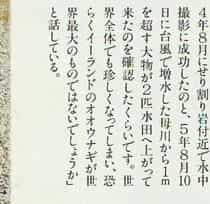 ４年８月にせり割り岩付近で水中
撮影に成功したのと、５年８月10
日に台風で増水した母川から１m
を超す大物が２匹水田へ上がって
来たのを確認したくらいです。世
界全体でも珍しくなってしまい、恐
らくイーランドのオオウナギが世
界最大のものではないでしょうか」
と話している。